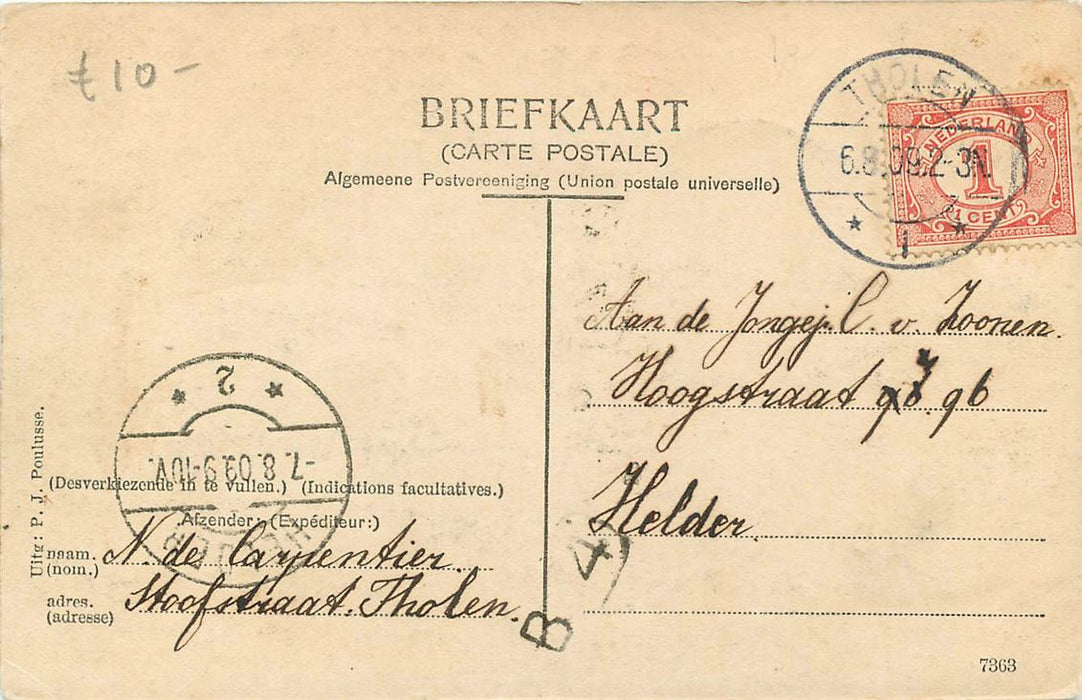 £10-
BRIEFKAART
(CARTE POSTALE)
Algemeene Postvereeniging (Union postale universelle)
THOLEN
6.8.09.2-3N.
1
NEDERLAND
1
1 CENT
Aan de Jongej. C. v. Zoonen.
Hoogstraat 96
Helder.
2
-7.8.09.9-10V.
HELDER
Uitg: P. J. Poulusse.
(Desverkiezende in te vullen.) (Indications facultatives.)
Afzender: (Expéditeur:)
naam. N. de Carpentier.
(nom.)
adres. Stoofstraat. Tholen.
(adresse)
B 4
7363